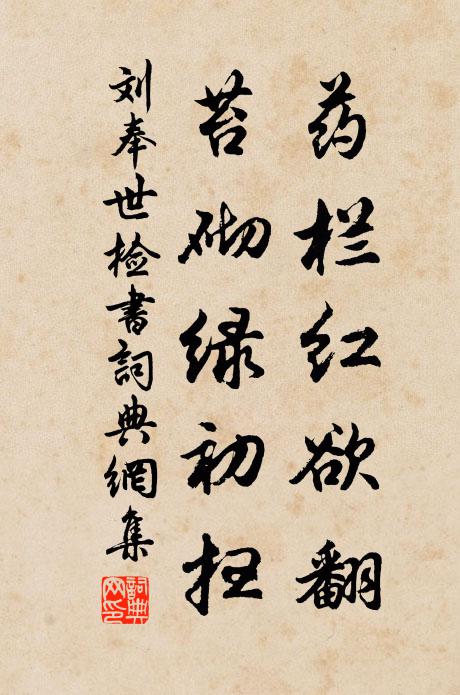 药栏红欲翻
苔砌绿初扫
刘奉世检书詞典網集
詞典网印